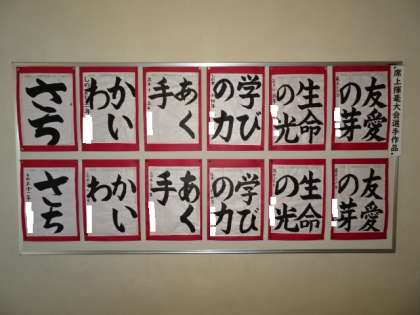 席上揮毫大会選手作品
友愛
の芽
生命
の光
学び
の力
あく
手
かい
わ
さち
友愛
の芽
生命
の光
学び
の力
あく
手
かい
わ
さち